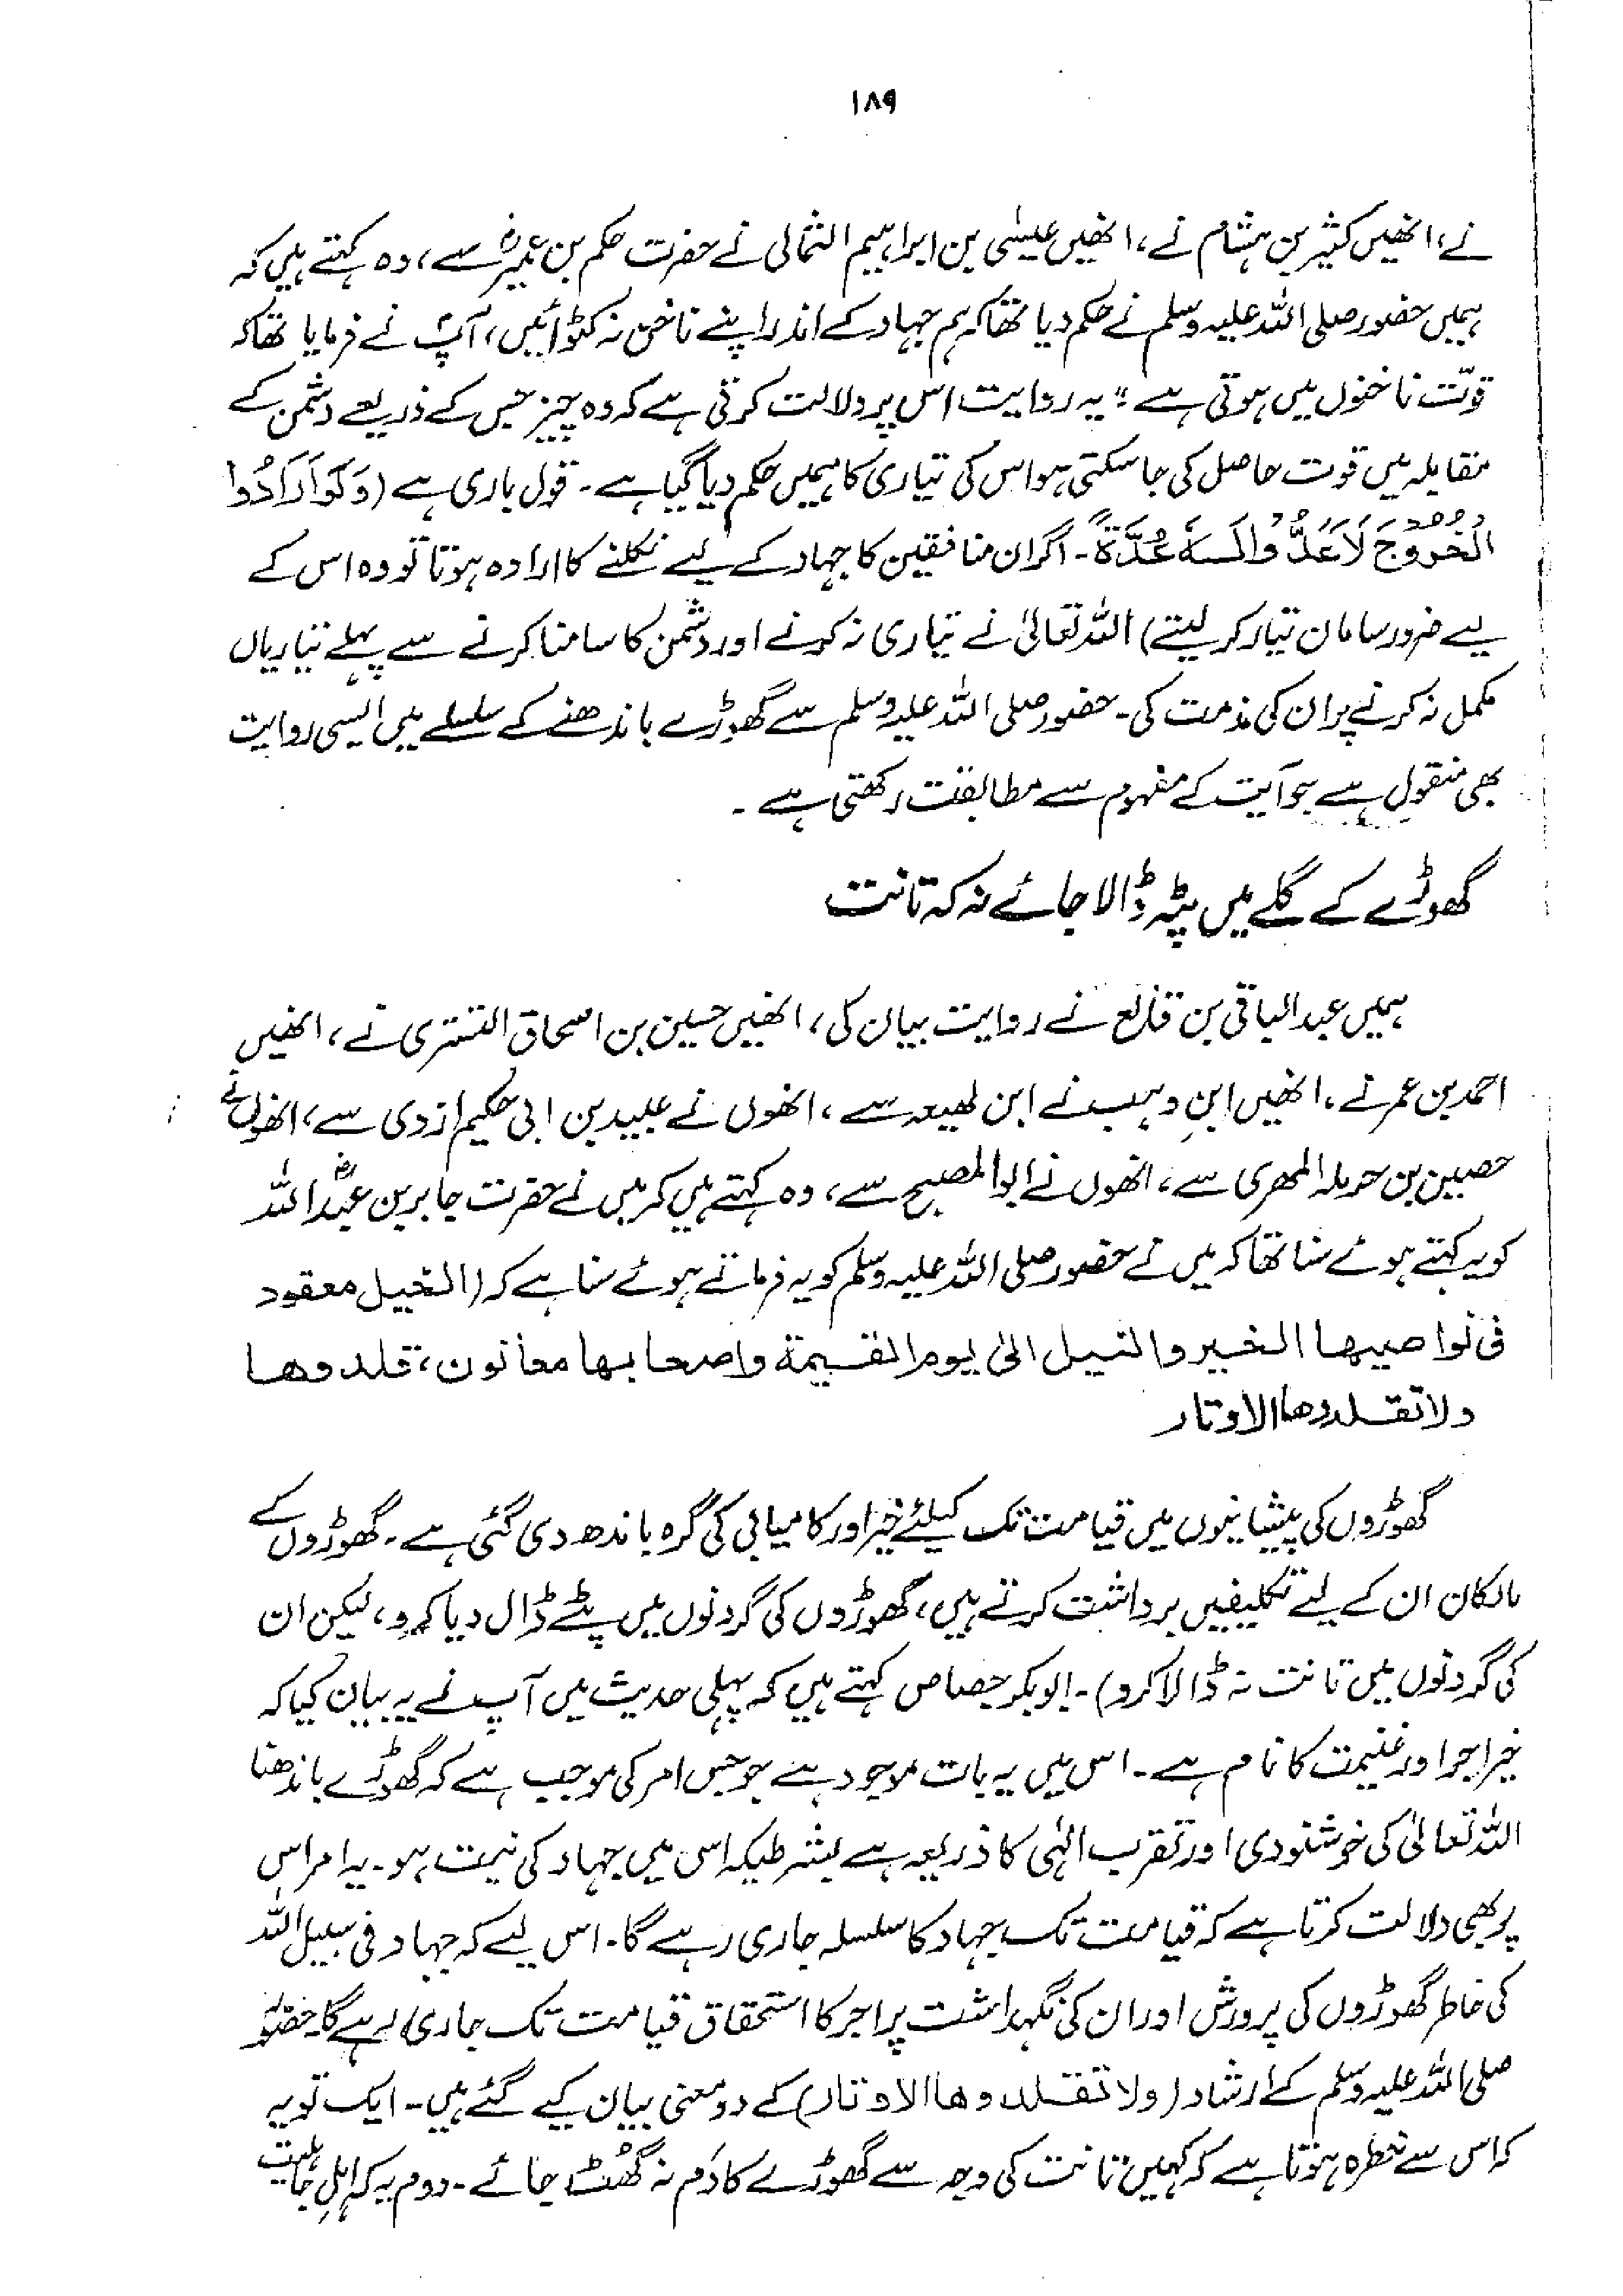 ۱۸۹
نے، انھیں کثیر بن ہشام نے، انھیں عیسٰی بن ابراہیم الثمالی نے حضرت حکم بن عمیرؓ سے، وہ کہتے ہیں کہ
ہمیں حضور صلی اللہ علیہ وسلم نے حکم دیا تھا کہ ہم جہاد کے اندر اپنے ناخن نہ کٹوائیں، آپؐ نے فرمایا تھا کہ
قوّت ناخنوں میں ہوتی ہے؛ یہ روایت اس پر دلالت کرتی ہے کہ وہ چیز جس کے ذریعے دشمن کے
مقابلہ میں قوت حاصل کی جا سکتی ہو اس کی تیاری کا ہمیں حکم دیا گیا ہے۔ قول باری ہے (وَلَوْ اَرَادُوا
الْخُرُوْجَ لَاَعَدُّوْا لَـهٗ عُدَّةً۔ اگر ان منافقین کا جہاد کے لیے نکلنے کا ارادہ ہوتا تو وہ اس کے
لیے ضرور سامان تیار کر لیتے) اللہ تعالیٰ نے تیاری نہ کرنے اور دشمن کا سامنا کرنے سے پہلے تیاریاں
مکمل نہ کرنے پر ان کی مذمت کی۔ حضور صلی اللہ علیہ وسلم سے گھوڑے باندھنے کے سلسلے میں ایسی روایت
بھی منقول ہے جو آیت کے مفہوم سے مطابقت رکھتی ہے۔
گھوڑے کے گلے میں پٹہ ڈالا جائے نہ کہ تانت
ہمیں عبدالباقی بن قانع نے روایت بیان کی، انھیں حسین بن اسحاق التستری نے، انھیں
احمد بن عمر نے، انھیں ابنِ وہب نے ابن لھیعہ سے، انھوں نے عبید بن ابی حکیم ازدی سے، انھوں نے
حصین بن حرملہ المھری سے، انھوں نے ابوالمصبح سے، وہ کہتے ہیں کہ میں نے حضرت جابر بن عبداللہؓ
کو یہ کہتے ہوئے سنا تھا کہ میں نے حضور صلی اللہ علیہ وسلم کو یہ فرماتے ہوئے سنا ہے کہ (الخیل معقود
فی نواصیھا الخیر والنیل الیٰ یوم القیٰمة واصحابھا معانون، قلدوھا
ولا تقلدوھا الاوتار
گھوڑوں کی پیشانیوں میں قیامت تک کیلئے خیر اور کامیابی کی گرہ باندھ دی گئی ہے۔ گھوڑوں کے
مالکان ان کے لیے تکلیفیں برداشت کرتے ہیں، گھوڑوں کی گردنوں میں پٹے ڈال دیا کرو، لیکن ان
کی گردنوں میں تانت نہ ڈالا کرو)۔ ابوبکر جصاص کہتے ہیں کہ پہلی حدیث میں آپ نے یہ بیان کیا کہ
خیر اجر اور غنیمت کا نام ہے۔ اس میں یہ بات موجود ہے جو جس امر کی موجب ہے کہ گھوڑے باندھنا
اللہ تعالیٰ کی خوشنودی اور تقرب الٰہی کا ذریعہ ہے بشرطیکہ اس میں جہاد کی نیت ہو۔ یہ امر اس
پر بھی دلالت کرتا ہے کہ قیامت تک جہاد کا سلسلہ جاری رہے گا۔ اس لیے کہ جہاد فی سبیل اللہ
کی خاطر گھوڑوں کی پرورش اور ان کی نگہداشت پر اجر کا استحقاق قیامت تک جاری رہے گا۔ حضور
صلی اللہ علیہ وسلم کے ارشاد (ولا تقلدوھا الاوتار) کے دو معنی بیان کیے گئے ہیں۔ ایک تو یہ
کہ اس سے خطرہ ہوتا ہے کہ کہیں تانت کی وجہ سے گھوڑے کا دَم نہ گھُٹ جائے۔ دوم یہ کہ اہلِ جاہلیت